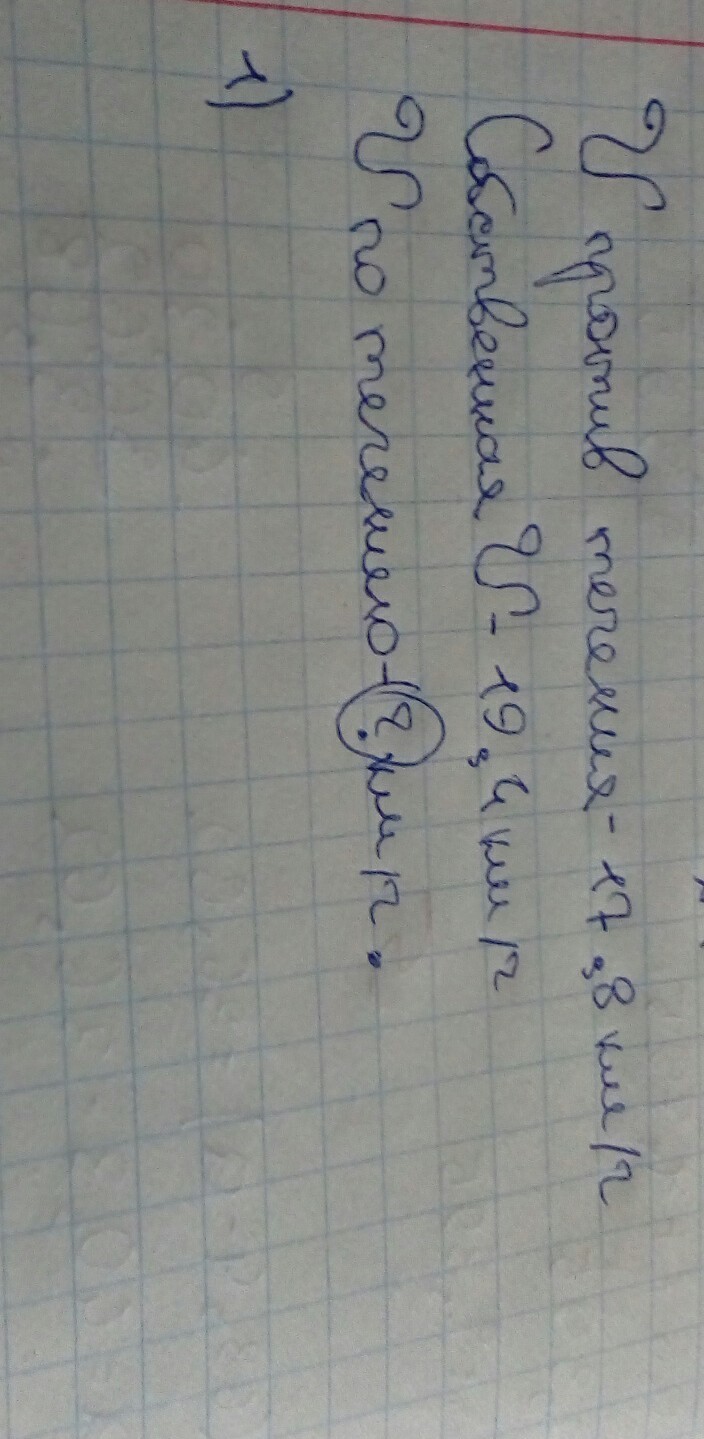 V против течения - 17,8 км/ч
Собственная V - 19,4 км/ч
V по течению - (?) км/ч.
1)